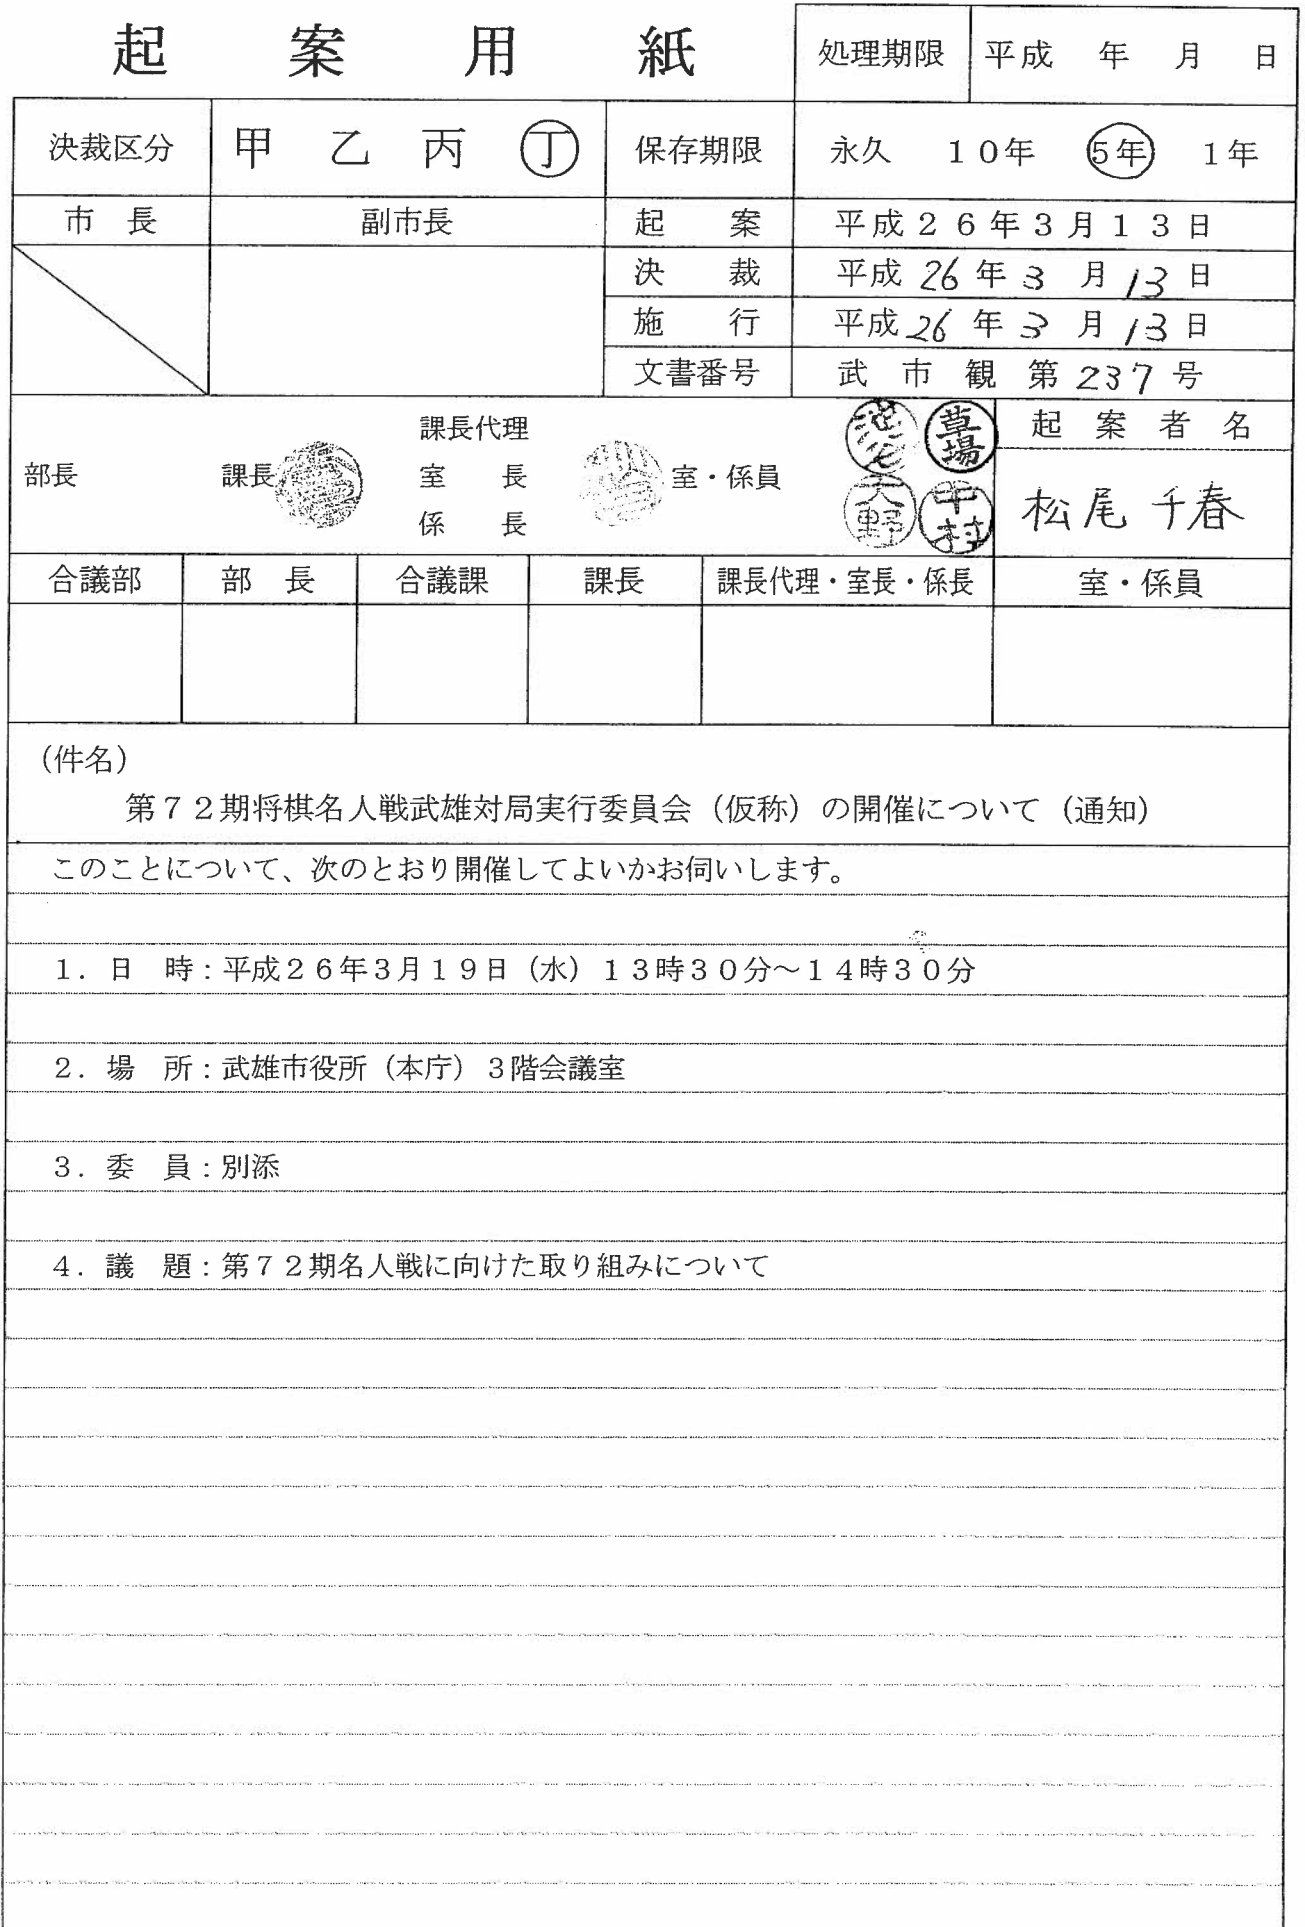 起案用紙
処理期限 平成 年 月 日
決裁区分 甲 乙 丙 丁 保存期限 永久 １０年 ５年 １年
市長 副市長 起案 平成２６年３月１３日
決裁 平成26年3月13日
施行 平成26年3月13日
文書番号 武市観第237号
課長代理
部長 課長 室長 室・係員
係長
草場
天野 中村
起案者名
松尾千春
合議部 部長 合議課 課長 課長代理・室長・係長 室・係員
（件名）
第７２期将棋名人戦武雄対局実行委員会（仮称）の開催について（通知）
このことについて、次のとおり開催してよいかお伺いします。
１．日　時：平成２６年３月１９日（水）１３時３０分～１４時３０分
２．場　所：武雄市役所（本庁）３階会議室
３．委　員：別添
４．議　題：第７２期名人戦に向けた取り組みについて